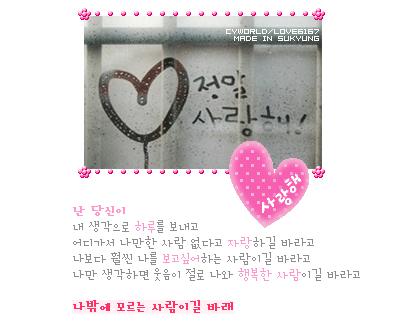 CYWORLD/LOVE6167
MADE IN SUKYUNG
정말
사랑해!
사랑해
난 당신이
내 생각으로 하루를 보내고
어디가서 나만한 사람 없다고 자랑하길 바라고
나보다 훨씬 나를 보고싶어하는 사람이길 바라고
나만 생각하면 웃음이 절로 나와 행복한 사람이길 바라고
나밖에 모르는 사람이길 바래